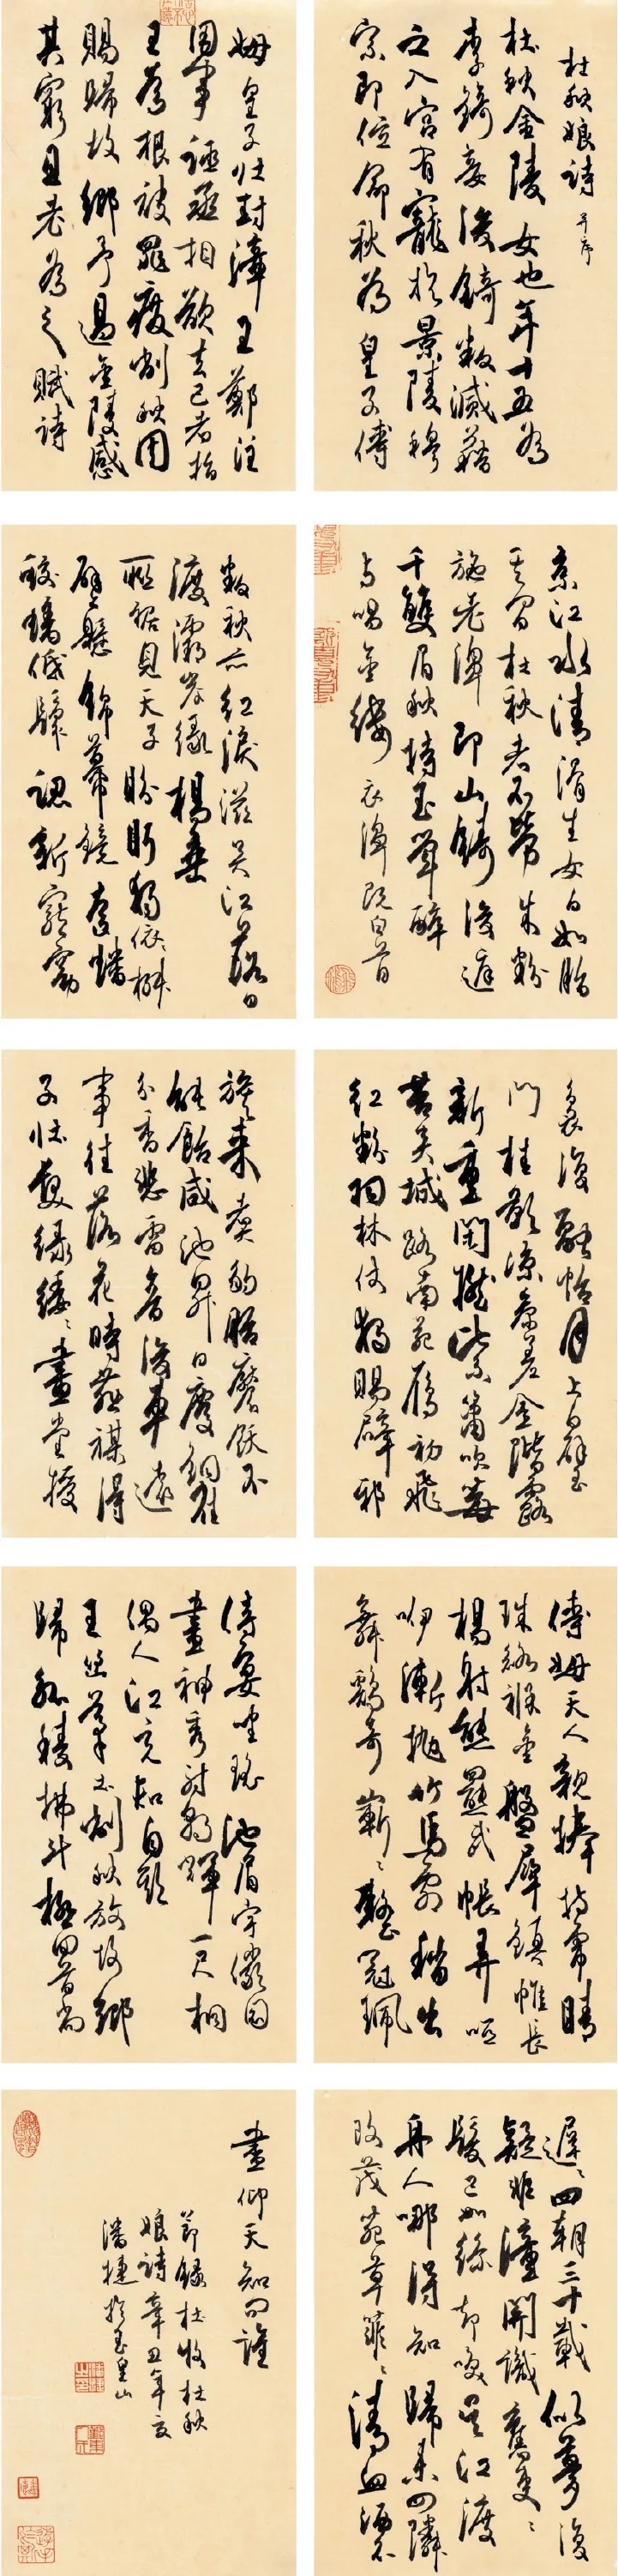 杜秋娘诗并序
杜秋金陵女也年十五为
李錡妾後錡叛滅籍
之入宫有寵於景陵穆
宗即位命秋為皇子傅
姆皇子壮封漳王鄭注
用事誣丞相欲去己者指
王為根被罪廢削秋因
賜歸故鄉予過金陵感
其窮且老為之賦詩
京江水清滑生女白如脂
其間杜秋者不勞朱粉
施老濞即山鑄後庭
千雙眉秋持玉斝醉
与唱金縷衣濞既白首
叛秋亦红淚滋吴江落日
渡灞岸緑楊垂
聯裾見天子盼眄獨依依
壁懸錦幕鏡奩蟠
蛟螭低鬟認新寵窈
裊復融怡月上白璧
門桂影凉参差金階露
新重閑撚紫簫吹莓
苔夹城路南苑雁初飛
红粉羽林仗獨賜辟邪
旗来煮豹胎饜飫不
能飴咸池昇日慶銅雀
分香悲雷音後車遠
事往落花時燕禖得
子壮髪绿緌緌畫堂授
傅姆天人親捧持虎睛
珠絡褓金盤犀鎮帷長
楊射熊羆武帳弄啞
咿漸抛竹馬劇稍出
舞鷄奇嶄嶄整冠珮
侍宴坐瑶池眉宇儼圖
畫神秀射朝輝一尺桐
偶人江充知自欺
王幽茅土削秋放故鄉
歸觚稜拂斗極回首尚
遲遲四朝三十載似夢復
疑非潼關識舊吏吏
髮已如絲却唤吴江渡
舟人哪得知歸来四隣
改茂苑草菲菲清血洒不
盡仰天知问誰
節録杜牧杜秋
娘詩辛丑年夏
潘捷於玉皇山